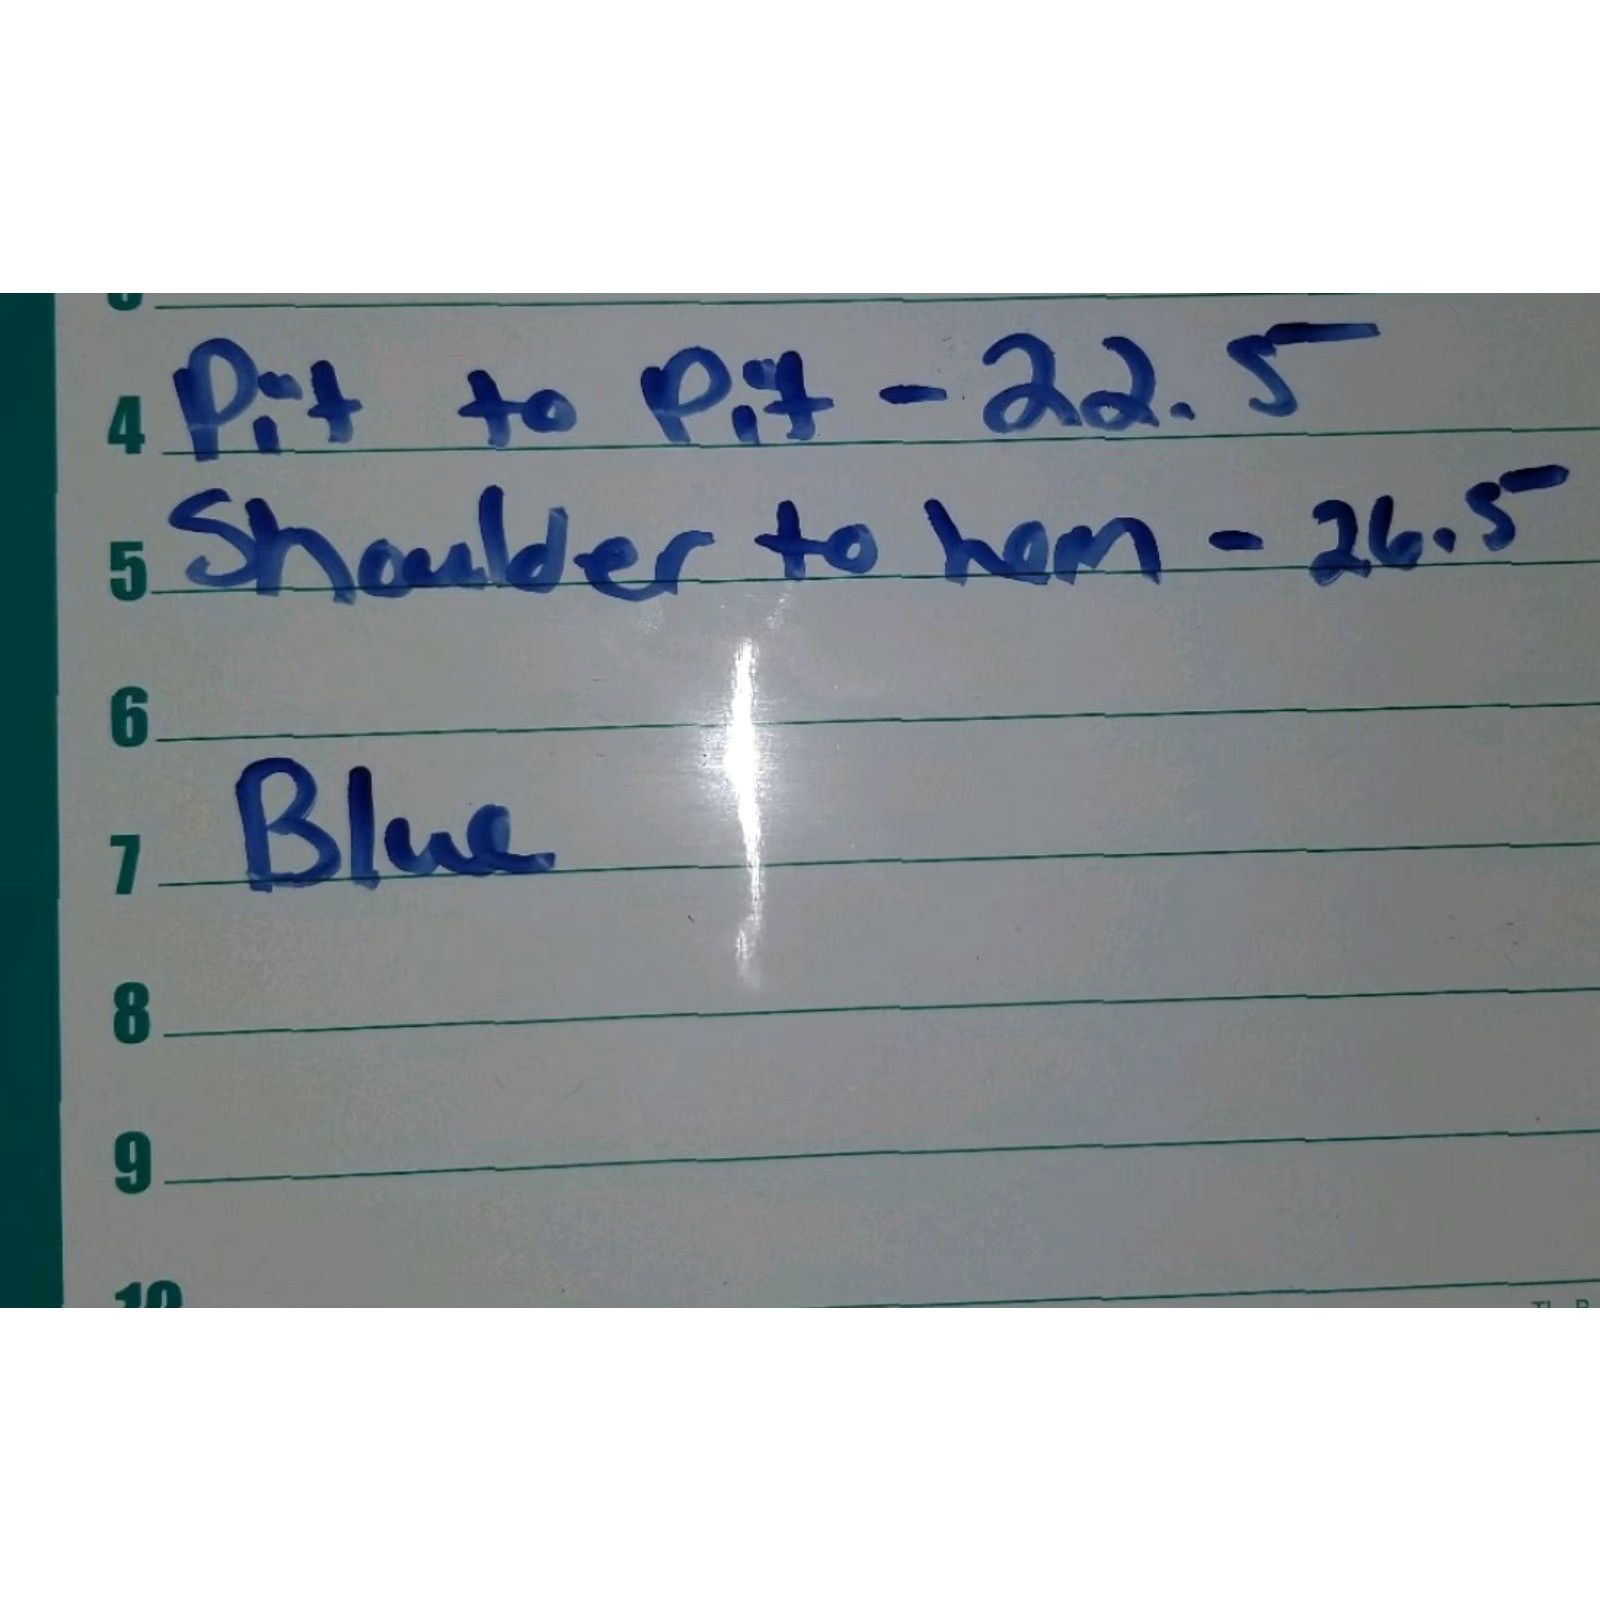 4 Pit to Pit - 22.5
5 Shoulder to hem - 26.5
6
7 Blue
8
9
10